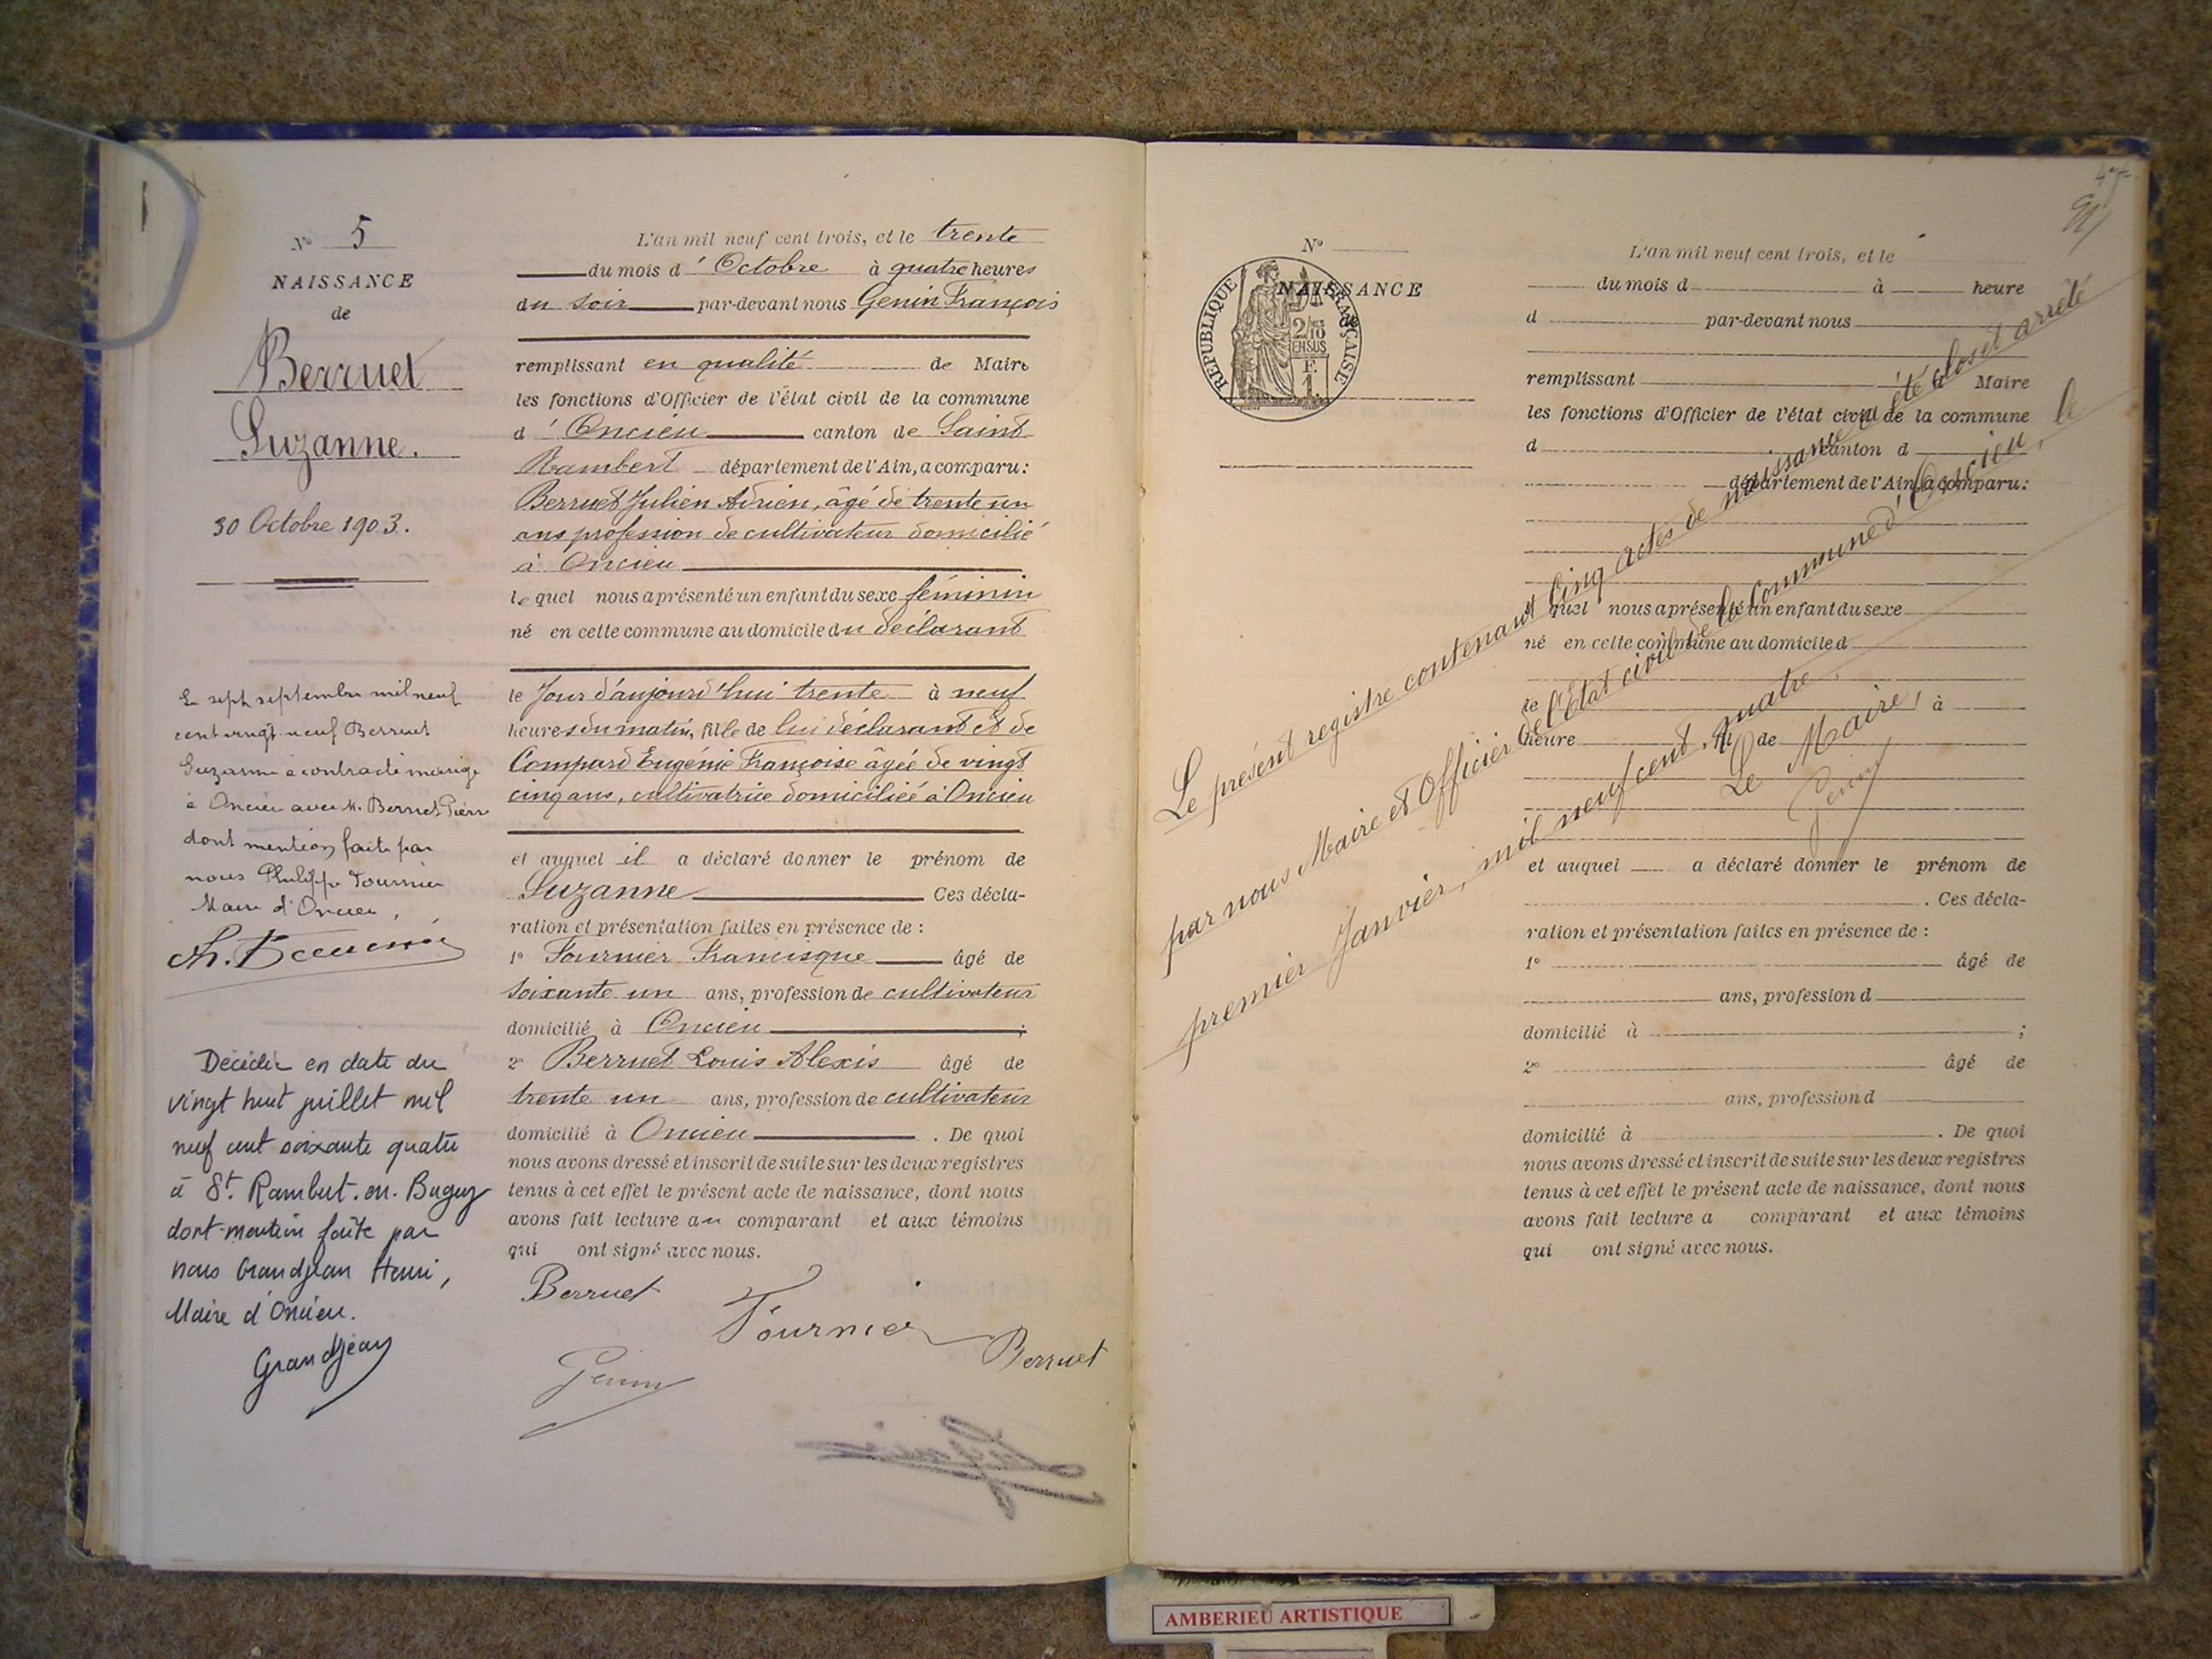 N° 5
NAISSANCE
de
Berruet
Suzanne.
30 Octobre 1903.
Le sept septembre mil neuf
cent vingt neuf Berruet
Suzanne a contracté mariage
à Oncieu avec M. Berruet Pierre
dont mention faite par
nous Philippe Tournier
Maire d'Oncieu,
Décédée en date du
vingt huit juillet mil
neuf cent soixante quatre
à St. Rambert-en-Bugey
dont mention faite par
nous Grandjean Henri,
Maire d'Oncieu.
Grandjean
L'an mil neuf cent trois, et le trente
du mois d'Octobre à quatre heures
du soir par-devant nous Genin François
remplissant en qualité de Maire
les fonctions d'Officier de l'état civil de la commune
d'Oncieu canton de Saint
Rambert département de l'Ain, a comparu:
Berruet Julien Adrien, âgé de trente un
ans profession de cultivateur domicilié
à Oncieu
lequel nous a présenté un enfant du sexe féminin
né en cette commune au domicile du déclarant
le Jour d'aujourd'hui trente à neuf
heures du matin, fille de lui déclarant et de
Compard Eugénie Françoise âgée de vingt
cinq ans, cultivatrice domiciliée à Oncieu
et auquel il a déclaré donner le prénom de
Suzanne Ces décla-
ration et présentation faites en présence de :
1° Fournier Francisque âgé de
soixante un ans, profession de cultivateur
domicilié à Oncieu ;
2° Berruet Louis Alexis âgé de
trente un ans, profession de cultivateur
domicilié à Oncieu . De quoi
nous avons dressé et inscrit de suite sur les deux registres
tenus à cet effet le présent acte de naissance, dont nous
avons fait lecture au comparant et aux témoins
qui ont signé avec nous.
Berruet
Fournier
Berruet
Genin
N°
NAISSANCE
de
RÉPUBLIQUE FRANÇAISE
2/10 MES
EN SUS
1 F.
L'an mil neuf cent trois, et le
du mois d à heure
d par-devant nous
remplissant Maire
les fonctions d'Officier de l'état civil de la commune
d canton d
département de l'Ain, a comparu:
quel nous a présenté un enfant du sexe
né en cette commune au domicile d
le à
heure fil de
et auquel a déclaré donner le prénom de
. Ces décla-
ration et présentation faites en présence de :
1° âgé de
ans, profession d
domicilié à ;
2° âgé de
ans, profession d
domicilié à . De quoi
nous avons dressé et inscrit de suite sur les deux registres
tenus à cet effet le présent acte de naissance, dont nous
avons fait lecture a comparant et aux témoins
qui ont signé avec nous.
Le présent registre contenant cinq actes de naissance a été clos et arrêté
par nous Maire et Officier de l'Etat civil de la Commune d'Oncieu, le
premier Janvier, mil neuf cent quatre.
Le Maire,
Genin
AMBERIEU ARTISTIQUE